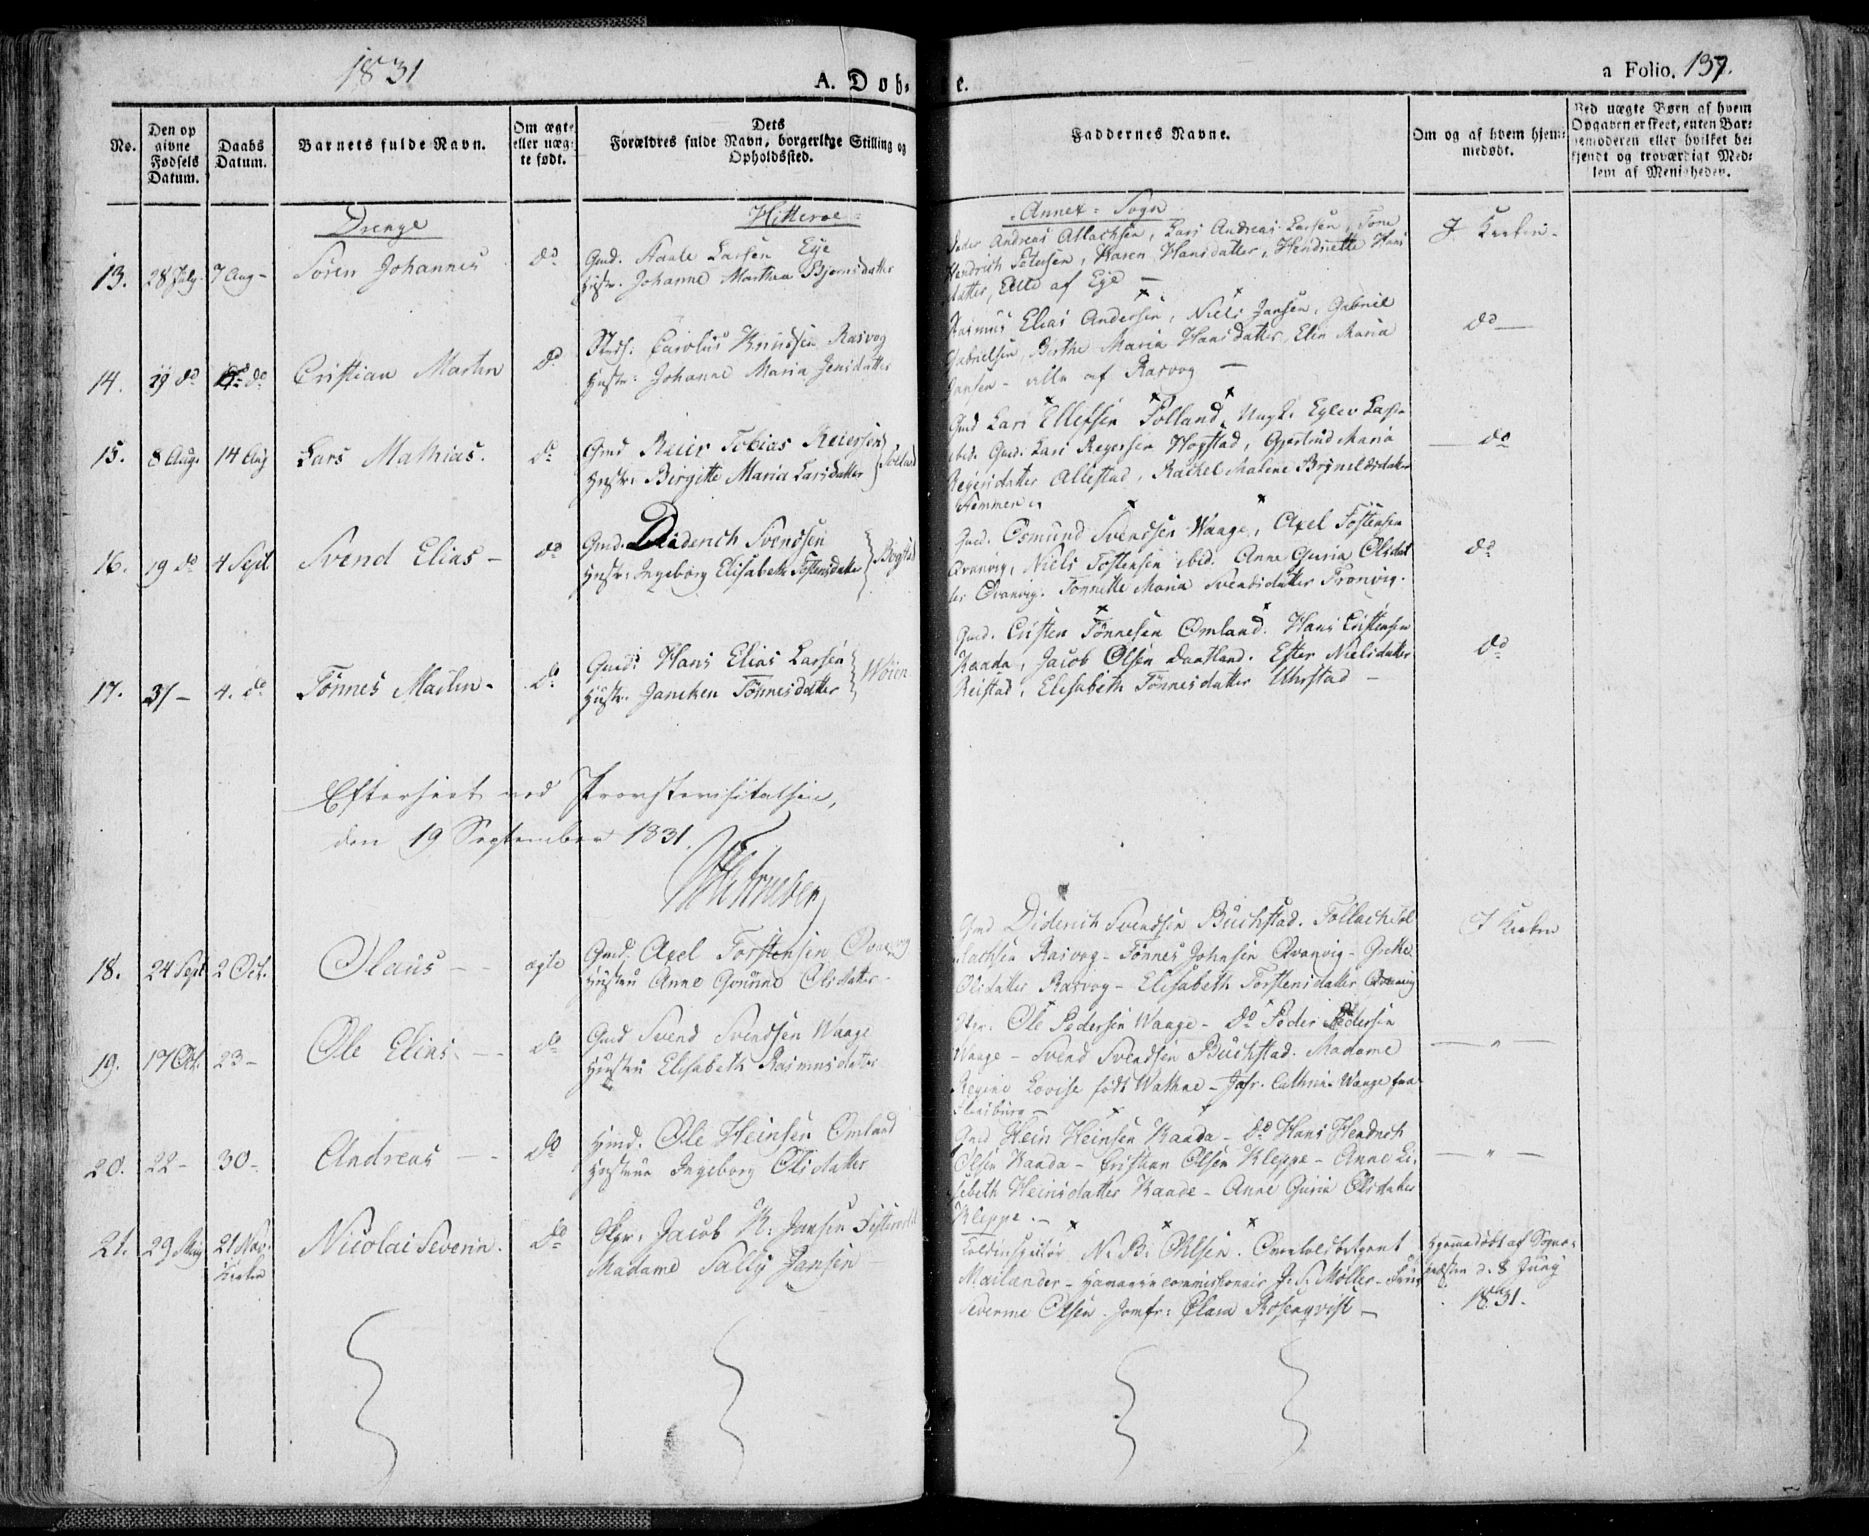 1831
A. Døb-
e.
a Folio. 137.
No.
Den op
givne
Fødsels
Datum.
Daabs
Datum.
Barnets fulde Navn.
Om ægte
eller uæg-
te født.
Dets
Forældres fulde Navn, borgerlige Stilling og
Opholdssted.
Faddernes Navne.
Om og af hvem hjem-
medøbt.
Ved uægte Børn af hvem
Opgaven er skeet, enten Bar-
nemoderen eller hvilket be-
kjendt og troværdigt Med-
lem af Menigheden.
Drenge
Hitteroe
Annex - Sogn
13. 28 July 7 Aug - Søren Johannes do
Gmd. Aanle Larsen Eye
Hustr. Johanne Marthea Bjørnsdatter
Peder Andreas Atlachsen, Lars Andreas Larsen, Tone
Hendrich Sølvesen, Karen Hansdatter, Hendriette Hans
datter, Alle af Eye -
J Kirken -
14. 29 do do Cristian Martin do
Strds: Carolus Knudsen Rasvog
Hustr: Johanne Maria Jensdatter
Rasmus Elias Andersen, Niels Jansen, Gabriel
Gabrielsen, Birthe Maria Hansdatter, Elen Maria
Jansen - alle af Rasvog -
do
15. 8 Aug. 14 Aug Lars Mathias. do
Gmd Reier Tobias Reiersen
Hustr: Birgitte Maria Larsdatter
Gmd Lars Ellefsen Folland, Ungk. Eylev Lars.
ibid. Gmd. Lars Reyersen Hogstad, Gjertrud Maria
Reyersdatter Allestad, Rachel Malene Brynildsdatter
Stemmer
do
16. 19 do 4 Sept Svend Elias - do
Gmd. Diderich Svendsen
Hustr: Ingeborg Elisabeth Tostensdatter Bogstad
Gmd. Osmund Svendsen Waage, Axel Tostensen
Qvanvig, Niels Tostensen ibid. Anne Guria Olsdat
ter Qvanvig. Tonnette Maria Svendsdatter Tronvig.
do
17. 31 - 4. do Tønnes Martin - do
Gmd: Hans Elias Larsen
Hustr. Janeken Tønnesdatter Woien
Gmd. Cristen Tønnesen Omland. Hans Cristensen
Kaada, Jacob Olsen Dautland. Ester Nielsdatter
Reistad, Elisabeth Tønnesdatter Uhrstad -
do
Efterseet ved Provstevisitatsen,
den 19 September 1831.
18. 24 Sept 2 Oct. Olaus - - ægte
Gmd. Axel Torstensen Qvanvig
Hustru Anne Gounne Olsdatter -
Gmd Diderich Svendsen Buchstad. Tollach Tol
lachsen Rasvog - Tønnes Johnsen Qvanvig - Grethe
Olsdatter Rasvog - Elisabeth Torstensdatter Qvanvig
J Kirken
19. 17 Oct. 23 - Ole Elias. - - do
Gmd Svend Svendsen Waage
Hustru Elisabeth Rasmusdatter
Ole Pedersen Waage - do Peder Pedersen
Waage - Svend Svendsen Buchstad. Madame
Regine Lovise født Wathne - Jfr. Cathrine Waage fra
Flensburg -
- " -
20. 22 - 30 - Andreas - - do
Hmd. Ole Heinsen Omland
Hustrue Ingeborg Olsdatter
Gmd Hein Heinsen Kaada - do Hans Hendrich
Olsen Kaada - Cristian Olsen Kleppe - Anne Li-
sebeth Heinsdatter Kaade - Anne Guria Olsdatter
Kleppe. -
- " -
21. 29 May 21 Nov. Nicolai Severin. do
Kirken
Skpr. Jacob K. Jansen
Madame Sally Jansen -
Toldinspektør N. B. Ohlsen. Overtoldbetjent
Mailænder - Havariecommissionair J. S. Møller - Frue
Severine Olsen. Jomfr: Clara Rosenqvist -
Hjemmedøbt af Sogne-
præsten d. 8 Juny
1831.